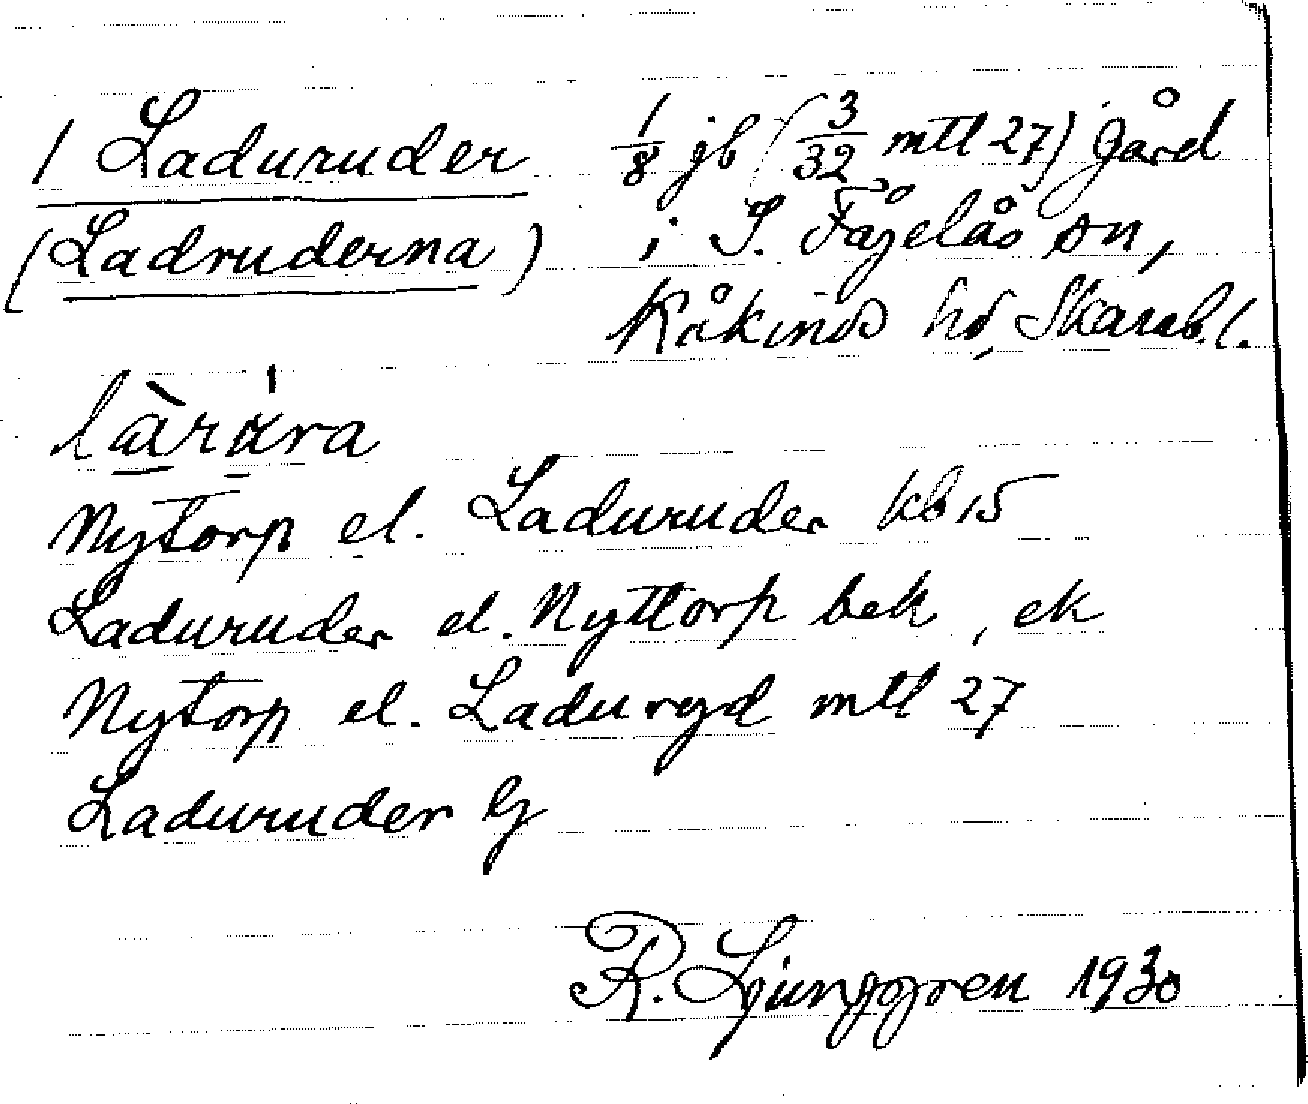 1 Laduruder 1/8 jb (3/32 mtl 27) Gård
(Ladruderna) i S. Fågelås sn,
Kåkinds hd, Skarab. l.
làrúra
Nytorp el. Laduruder kb 15
Laduruder el. Nyttorp bek, ek
Nytorp el. Laduryd mtl 27
Laduruder G
R. Ljunggren 1930